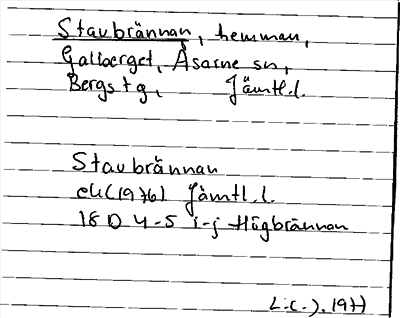 Staubrännan, hemman,
Galberget, Åsarne sn,
Bergs tg, Jämtl.l.
Staubrännan
ek(1976) Jämtl.l.
18 D 4-5 i-j Högbrännan
1977